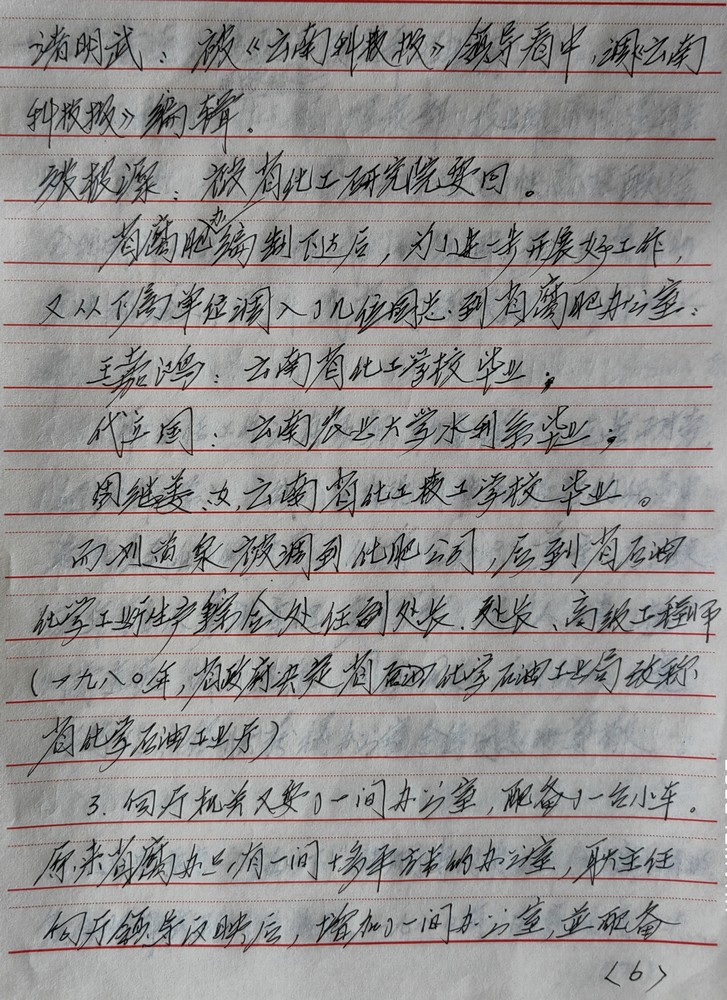 诸明武：被《云南科技报》领导看中，调《云南
科技报》编辑。
被省化工研究院要回。
省腐肥办编制下达后，为了进一步开展好工作，
又从下属单位调入了几位同志到省腐肥办公室：
王嘉鸿：云南省化工学校毕业；
代立国：云南农业大学水利系毕业；
周继姜，女，云南省化工技工学校毕业。
而刘道泉被调到化肥公司，后到省石油
化学工业厅生产综合处任副处长、处长、高级工程师
(一九八〇年，省政府决定省石油化学石油工业局改称
省化学石油工业厅)
3. 向厅机关又要了一间办公室，配备了一台小车。
原来省腐办只有一间十多平方米的办公室，耿主任
向厅领导反映后，增加了一间办公室，並配备
〈6〉